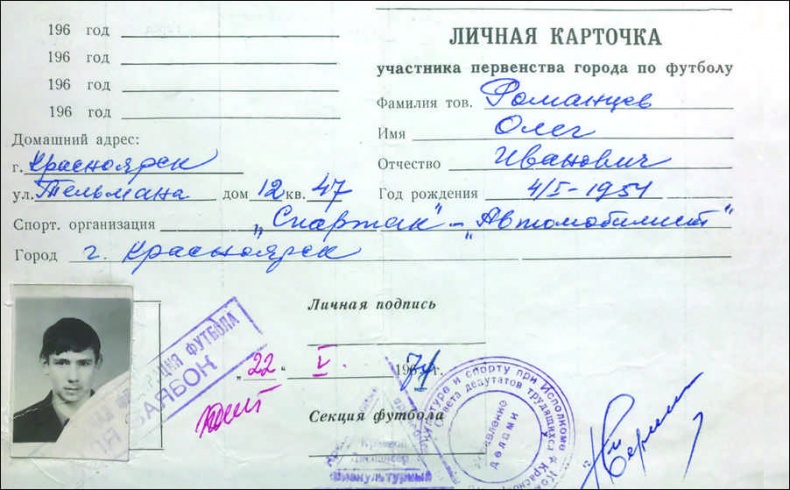 196 год
196 год
196 год
196 год
ЛИЧНАЯ КАРТОЧКА
участника первенства города по футболу
Фамилия тов. Романцев
Имя Олег
Отчество Иванович
Год рождения 4/I-1954
Домашний адрес:
г. Красноярск
ул. Тельмана дом 12 кв. 47
Спорт. организация „Спартак" – „Автомобилист"
Город г. Красноярск
Личная подпись
„22" V. 1971 г.
Секция футбола
ЦИЯ ФУТБОЛА
культуре и спорту при Исполкоме
Совета депутатов трудящихся
Управление делами
Физкультурный